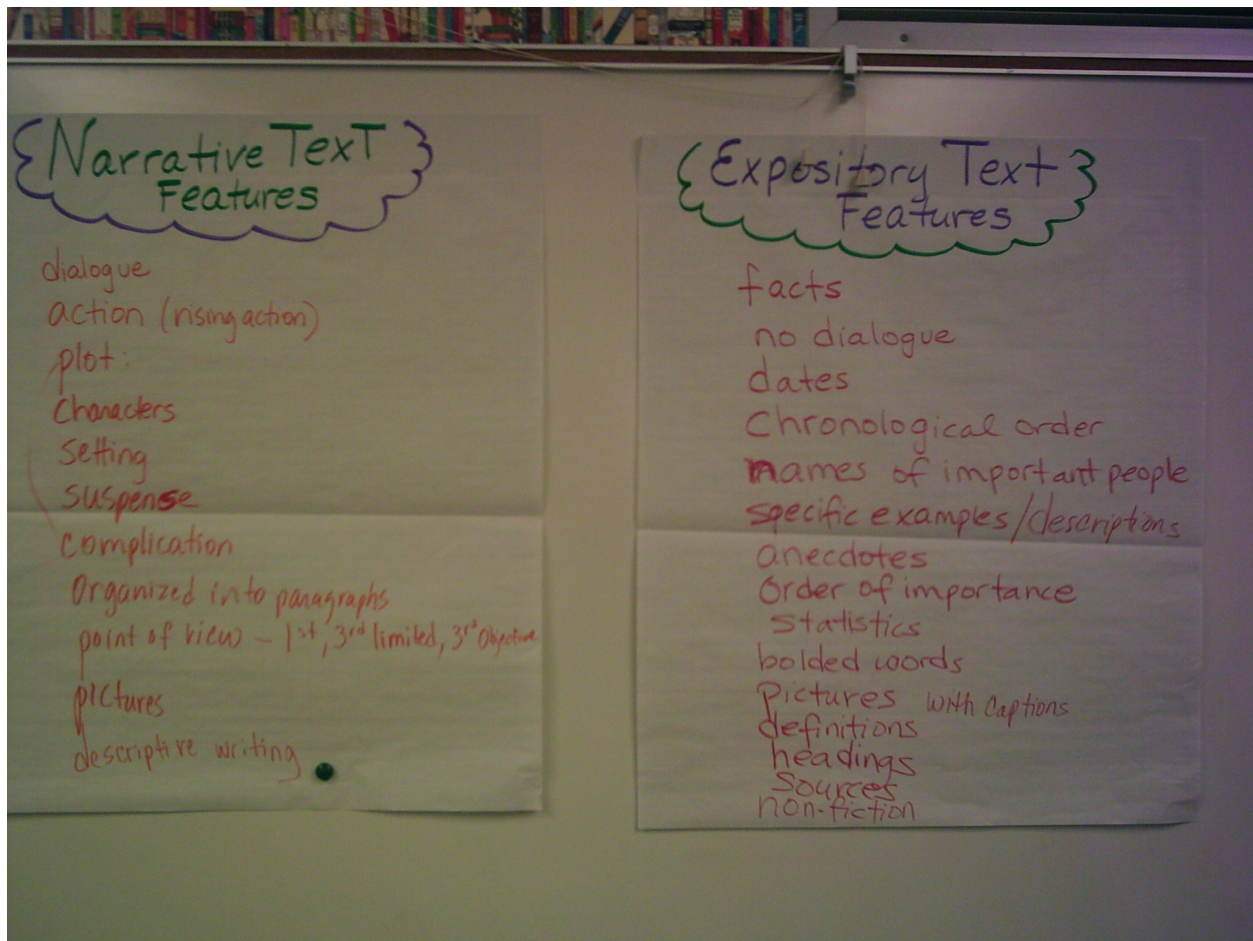 Narrative Text
Features
dialogue
action (rising action)
plot:
Characters
Setting
suspense
complication
Organized into paragraphs
point of view - 1st, 3rd limited, 3rd Objective
pictures
descriptive writing
Expository Text
Features
facts
no dialogue
dates
Chronological order
names of important people
specific examples/descriptions
anecdotes
Order of importance
statistics
bolded words
Pictures with Captions
definitions
headings
Sources
non-fiction